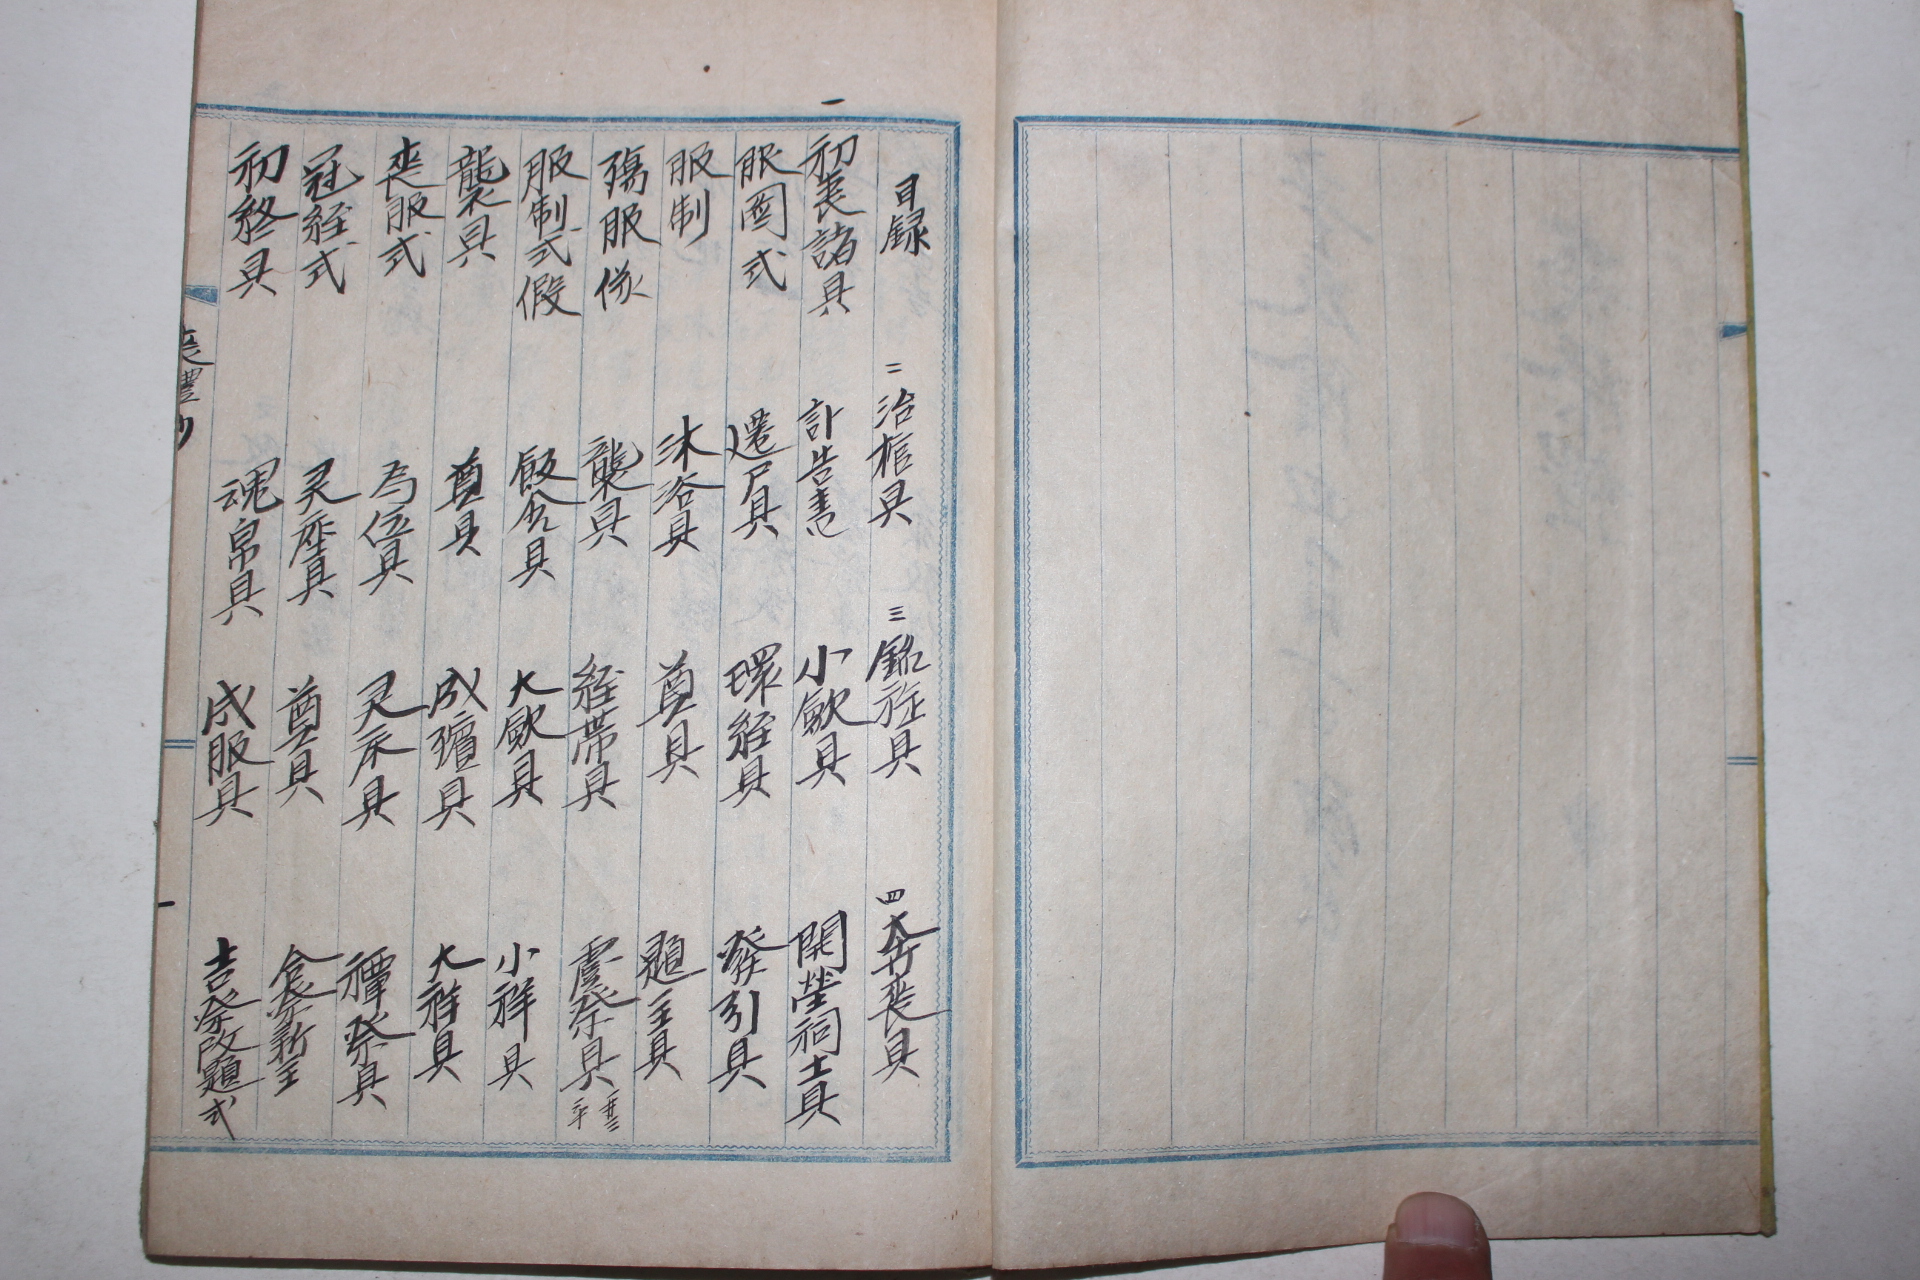 目錄
一
初喪諸具
服圖式
服制
殤服
服制式假
襲具
喪服式
冠絰式
初終具
二
治棺具
訃告書
遷尸具
沐浴具
襲具
飯含具
奠具
为位具
灵座具
魂帛具
三
銘旌具
小歛具
環絰具
奠具
絰帶具
大歛具
成殯具
灵床具
奠具
成服具
四
奔喪具
開塋祠土具
發引具
題主具
虞祭具
小祥具
大祥具
禫祭具
合祭新主
吉祭改題式
喪禮抄
一